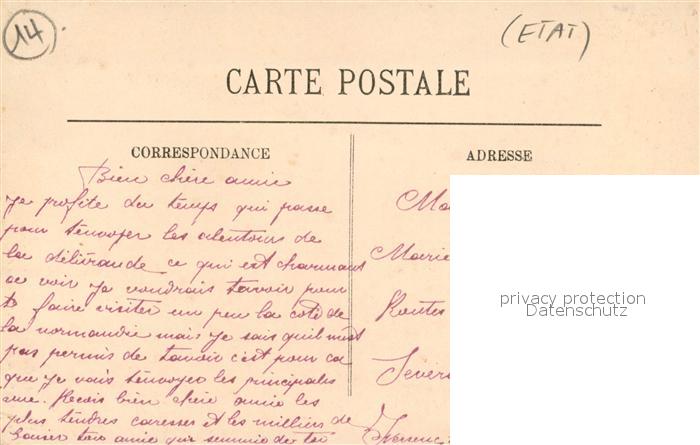 14
(ETAT)
CARTE POSTALE
CORRESPONDANCE
ADRESSE
Bien chère amie
je profite du temps qui passe
pour t'envoyer les alentours de
la délivrande ce qui est charmant
a voir je voudrais tavoir pour
te faire visiter un peu la cote de
la normandie mais je sais quil m'est
pas permis de tavoir c'est pour ca
que je vais t'envoyer les principales
vue. Recois bien chère amie les
plus tendres caresses et les milliers de
baiser ton amie qui
Marie
Routes
privacy protection
Datenschutz